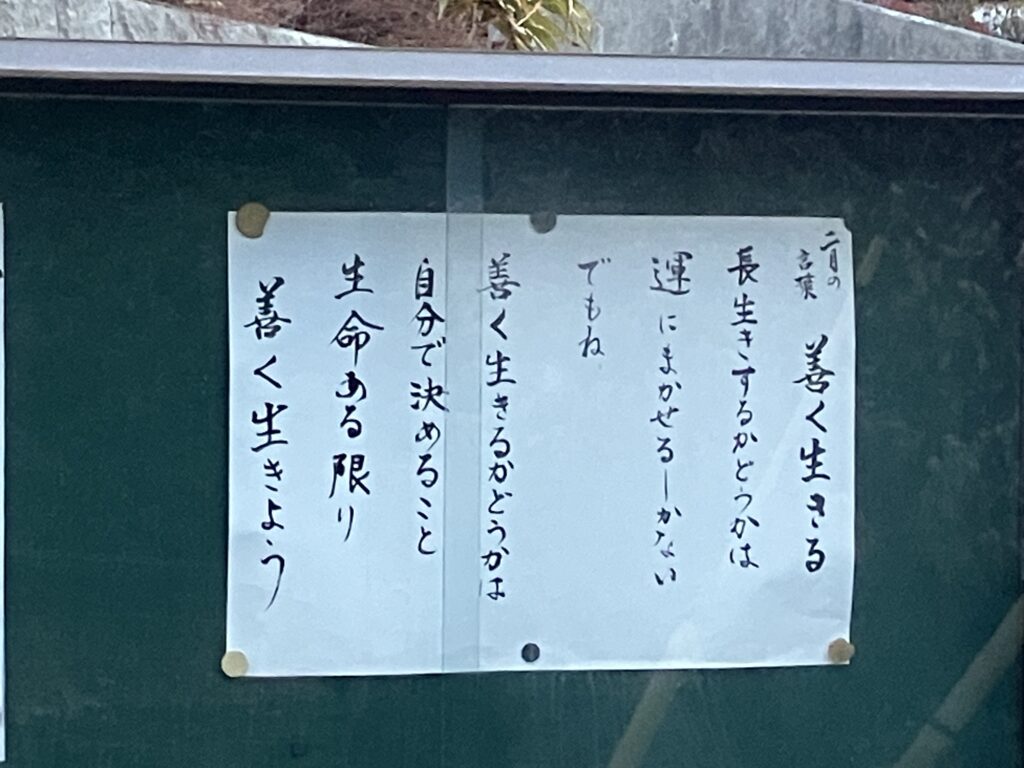 二月の
言葉
善く生きる
長生きするかどうかは
運にまかせるしかない
でもね
善く生きるかどうかは
自分で決めること
生命ある限り
善く生きよう